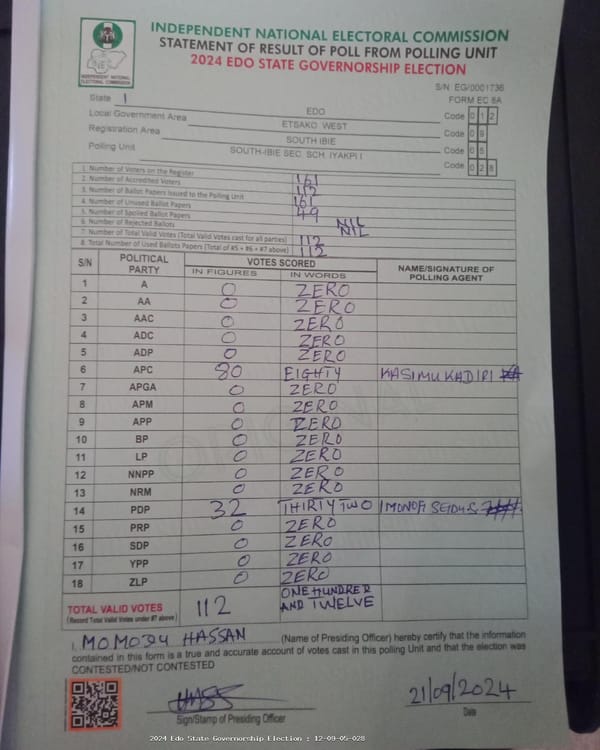 INDEPENDENT NATIONAL ELECTORAL COMMISSION
STATEMENT OF RESULT OF POLL FROM POLLING UNIT
2024 EDO STATE GOVERNORSHIP ELECTION
INDEPENDENT NATIONAL ELECTORAL COMMISSION
S/N EG/0001736
FORM EC 8A
State EDO Code 0 1 2
Local Government Area ETSAKO WEST Code 0 9
Registration Area SOUTH IBIE Code 0 5
Polling Unit SOUTH-IBIE SEC. SCH. IYAKPI I Code 0 2 8
1. Number of Voters on the Register 161
2. Number of Accredited Voters 112
3. Number of Ballot Papers Issued to the Polling Unit 161
4. Number of Unused Ballot Papers 49
5. Number of Spoiled Ballot Papers NIL
6. Number of Rejected Ballots NIL
7. Number of Total Valid Votes (Total Valid Votes cast for all parties) 112
8. Total Number of Used Ballots Papers (Total of #5 + #6 + #7 above) 112
S/N POLITICAL PARTY VOTES SCORED NAME/SIGNATURE OF POLLING AGENT
IN FIGURES IN WORDS
1 A 0 ZERO
2 AA 0 ZERO
3 AAC 0 ZERO
4 ADC 0 ZERO
5 ADP 0 ZERO
6 APC 80 EIGHTY KASIMU KADIRI
7 APGA 0 ZERO
8 APM 0 ZERO
9 APP 0 ZERO
10 BP 0 ZERO
11 LP 0 ZERO
12 NNPP 0 ZERO
13 NRM 0 ZERO
14 PDP 32 THIRTY TWO
15 PRP 0 ZERO
16 SDP 0 ZERO
17 YPP 0 ZERO
18 ZLP 0 ZERO
TOTAL VALID VOTES 112 ONE HUNDRED
(Record Total Valid Votes under #7 above) AND TWELVE
I, MOMODU HASSAN (Name of Presiding Officer) hereby certify that the information
contained in this form is a true and accurate account of votes cast in this polling Unit and that the election was
CONTESTED/NOT CONTESTED
21/09/2024
Sign/Stamp of Presiding Officer Date
2024 Edo State Governorship Election : 12-09-05-028